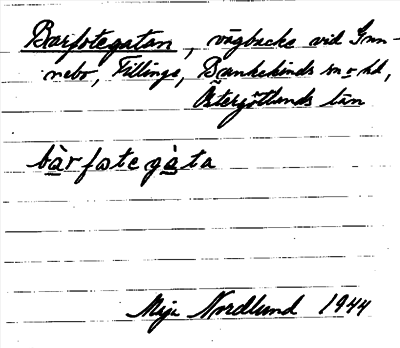 Barfotegatan, vägbacke vid Inn-
nebo, Fillinge, Bankekinds sn o hd,
Östergötlands län
bàrfotegàta
Maja Nordlund 1944